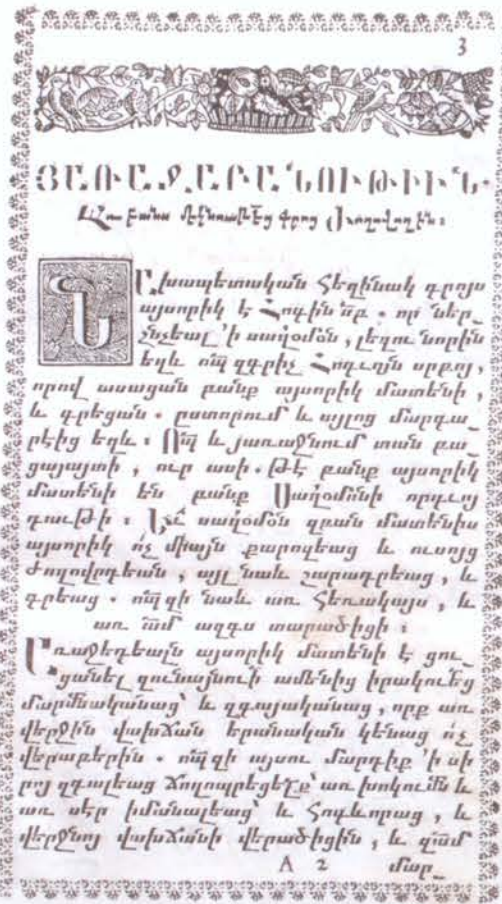 3
ՅԱՌԱՋԱԲԱՆՈՒԹԻՒՆ
բանս մեկնութեց գրոց Ժողովողին։
Նախապետական հեղինակ գրոյս
այսորիկ է հոգին սբ. որ ներ_
շնչեալ 'ի սաղօմօն, լեզու նորին
եղև որպ գրիչ հոգւոյն սրբոյ,
որով ասացան բանք այսորիկ մատենի,
և գրեցան. ըստորում և այլոց մարգա_
րէից եղև։ Որպ և յառաջնում տան բա_
ցայայտի, ուր ասի. թէ բանք այսորիկ
մատենի են բանք Սաղօմօնի որդւոյ
դաւթի։ սաղօմօն զբան մատենիս
այսորիկ ոչ միայն քարոզեաց և ուսոյց
ժողովրդեան, այլ նաև շարագրեաց, և
գրեաց. որպ զի նաև առ հեռակայս, և
առ ամ ազգս տարածիցի։
Առաջեդեալն այսորիկ մատենի է ցու_
ցանել զունայնուի ամենից իրակուեց
մարմնականաց՝ և զգայականաց, որք առ
վերջին վախճան երանական կենաց ոչ
վերաբերին. որպ զի այսու մարդիք 'ի սի
րոյ զգալեաց ճողոպրեցելք՝ առ խոկումն և
առ սէր իմանալեաց՝ և հոգևորաց, և
վերջնոյ վախճանի վերածիցին, և զամ
A 2 մար_